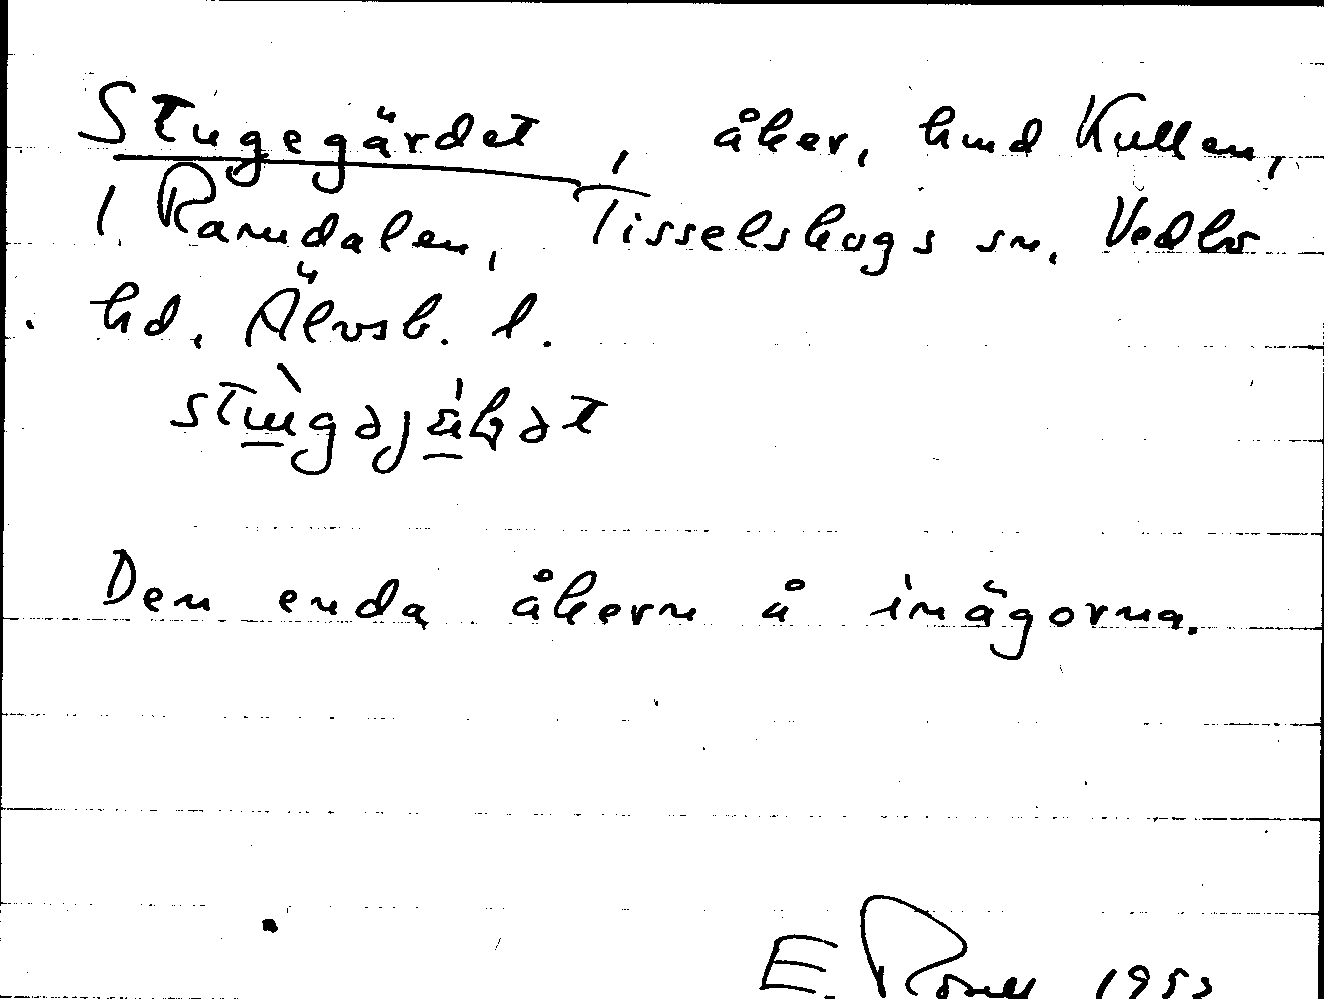 Stugegärdet, åker, hmd Kullen,
i Ramdalen, Tisselskogs sn. Vedbo
hd. Älvsb. l.
Den enda åkern å inägorna.
E. 195